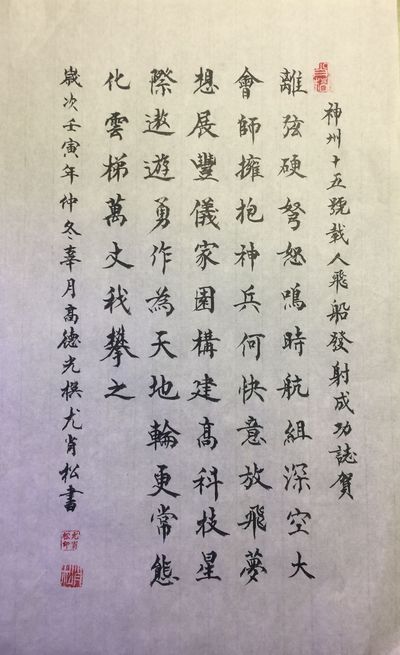 神州十五號载人飛船發射成功誌賀
離弦硬弩怒鳴時航組深空大
會師擁抱神兵何快意放飛夢
想展豐儀家園構建高科技星
際遨遊勇作為天地輪更常態
化雲梯萬丈我攀之
歲次壬寅年仲冬辜月高德光撰尤肖松書
尤肖松印